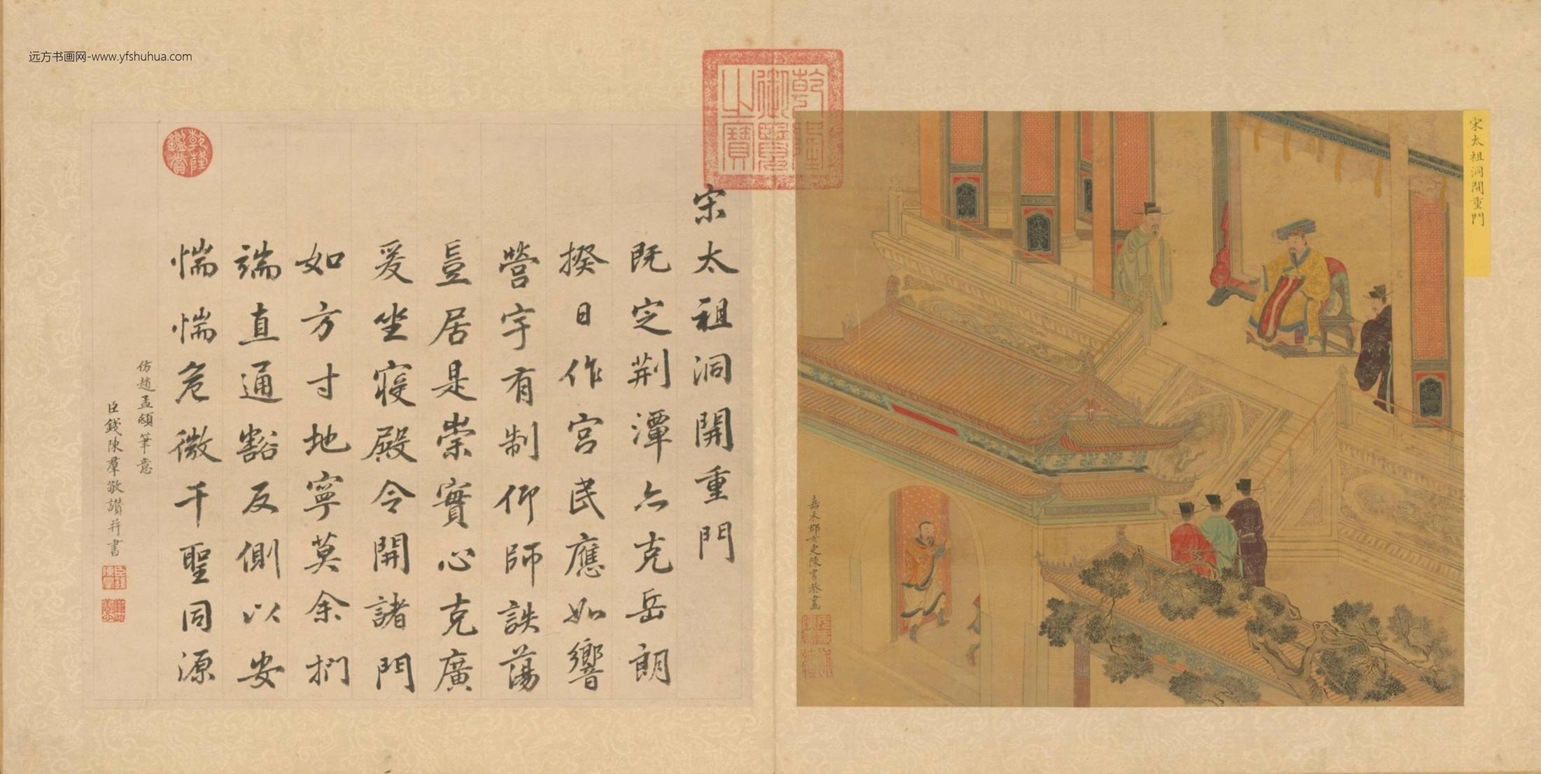 远方书画网-www.yfshuhua.com
乾隆御覽之寶
宋太祖洞開重門
嘉禾女史陳書恭畫
宋太祖洞開重門
既定荆潭亦克岳朗
揆日作宮民應如響
營宇有制仰師詄蕩
豈居是崇實心克廣
爰坐寢殿令開諸門
如方寸地寧莫余捫
端直通豁反側以安
惴惴危微千聖同源
仿趙孟頫筆意
臣錢陳羣敬讚并書
乾隆鑑賞